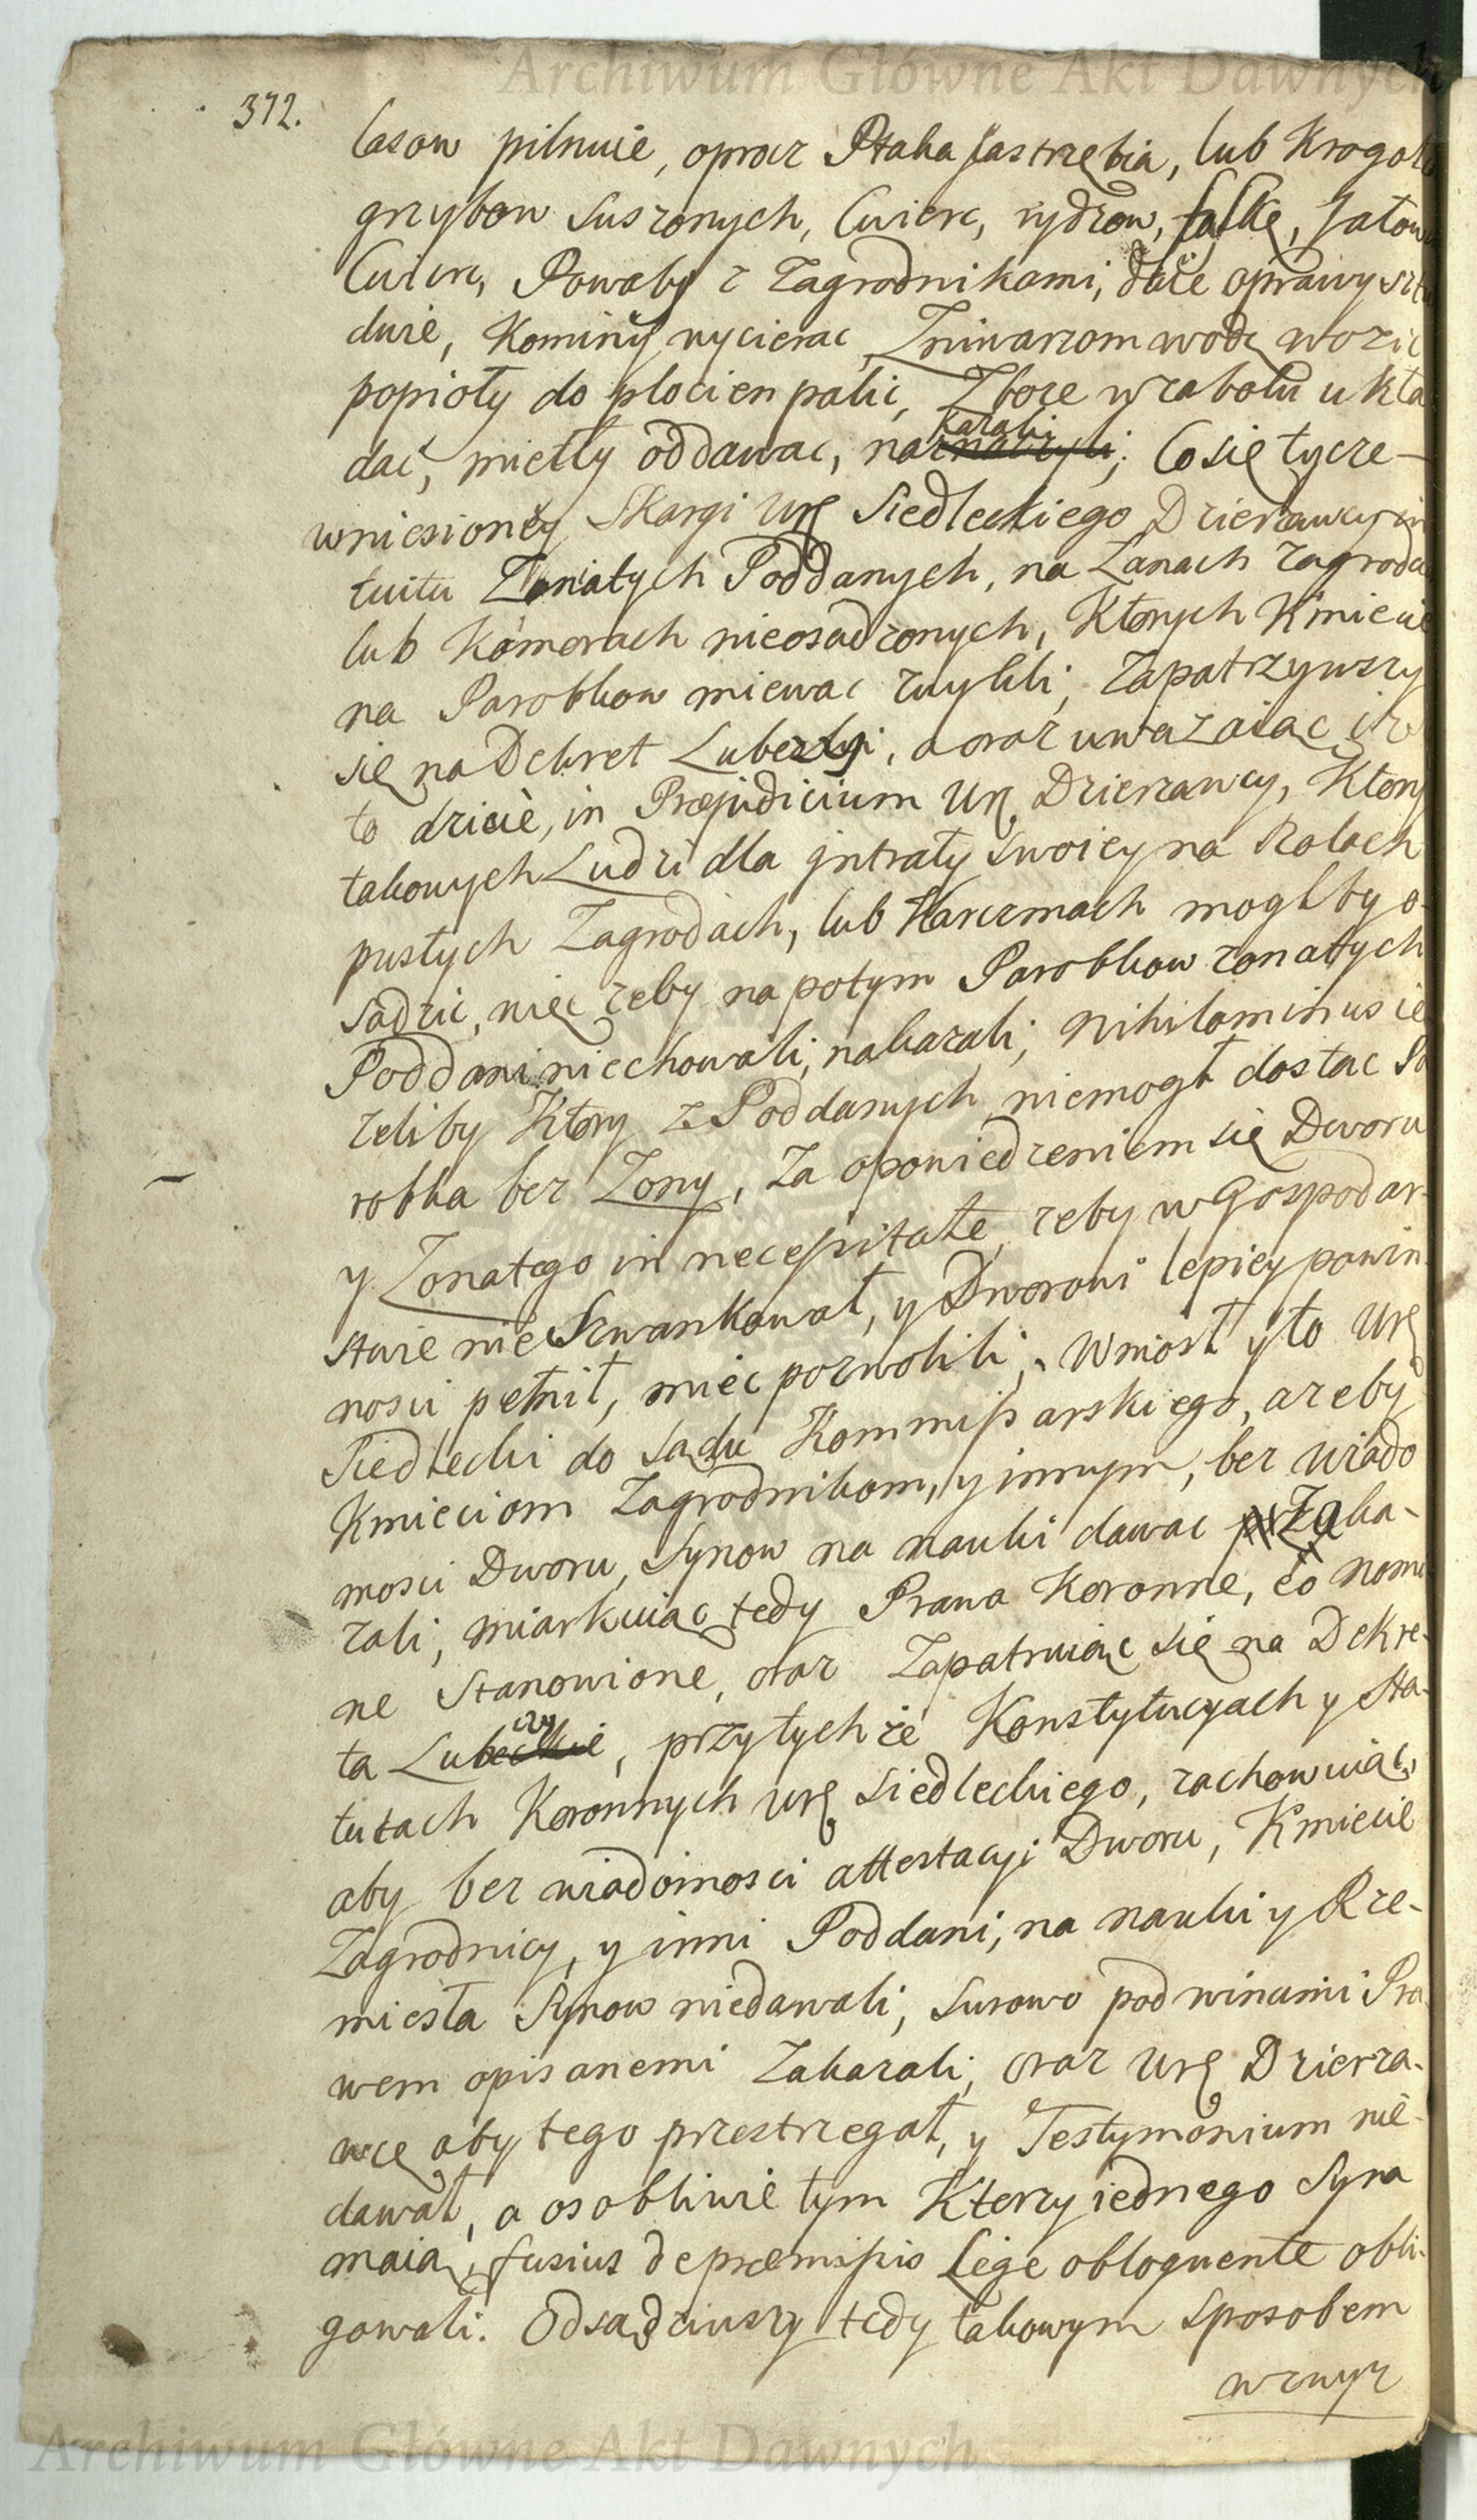 Archiwum Główne Akt Dawnych
372.
lasow pilnuie, oprocz Ptaka Jastrzębia, lub Krogol
grzybow suszonych, Cwierc, rydzow, faskę, Jałow
Cwierc, Powaby z Zagrodnikami, daie oprawy
duie, Kominy wycierac, Zniwarzom wodę wozic
popioły do płocien palic, Zboze w rabolu ukła
dać, mietły oddawac, nakazali; Co się tycze
wniesioney Skargi Ur. Siedleckiego Dzierzawcy in
tuitu Zoniatych Poddanych, na Łanach Zagrodac
lub Komorach nieosadzonych, Ktorych Kmiecie
na Parobkow miewac zwykli, Zapatrzywszy
się na Dekret Lubezki, a oraz uwazaiąc iz
to dzieie, in Præjudicium Ur. Dzierzawcy, Ktory
takowych Ludzi dla jntraty swoiey na Rolach
pustych Zagrodach, lub Karczmach mogłby o-
sadzic, więc zeby na potym Parobkow zonatych
Poddani niechowali, nakazali; nihilominus ie
zeliby Ktory z Poddanych niemogł dostac Pa
robka bez Zony, Za opowiedzeniem się Dworu
y Zonatego in necessitate, zeby w Gospodar-
stwie nie Szwankował, y Dworowi lepiey powin
nosci pełnił, miec pozwolili; Wniosł y to Ur.
Siedlecki do Sądu Kommissarskiego, azeby
Kmieciom Zagrodnikom, y innym, bez wiado
mosci Dworu, Synow na nauki dawac Zaka-
zali, miarkuiąc tedy Prawa Koronne, eo nomi
ne Stanowione, oraz Zapatruiąc się na Dekre-
ta Lubeckie, przy tychze Konstytucyach y Sta-
tutach Koronnych Ur. Siedleckiego, zachowuiąc,
aby bez wiadomosci attestacyi Dworu, Kmiecie
Zagrodnicy, y inni Poddani, na nauki y Rze-
miesła Synow niedawali, surowo pod winami Pra
wem opisanemi Zakazali, oraz Ur. Dzierza-
wcę aby tego przestrzegał, y Testymonium nie-
dawał, a osobliwie tym Ktorzy iednego Syna
maią, fusius de præmissis Lege obloquente obli-
gowali. Odsądziwszy tedy takowym sposobem
wzwyz
Archiwum Główne Akt Dawnych